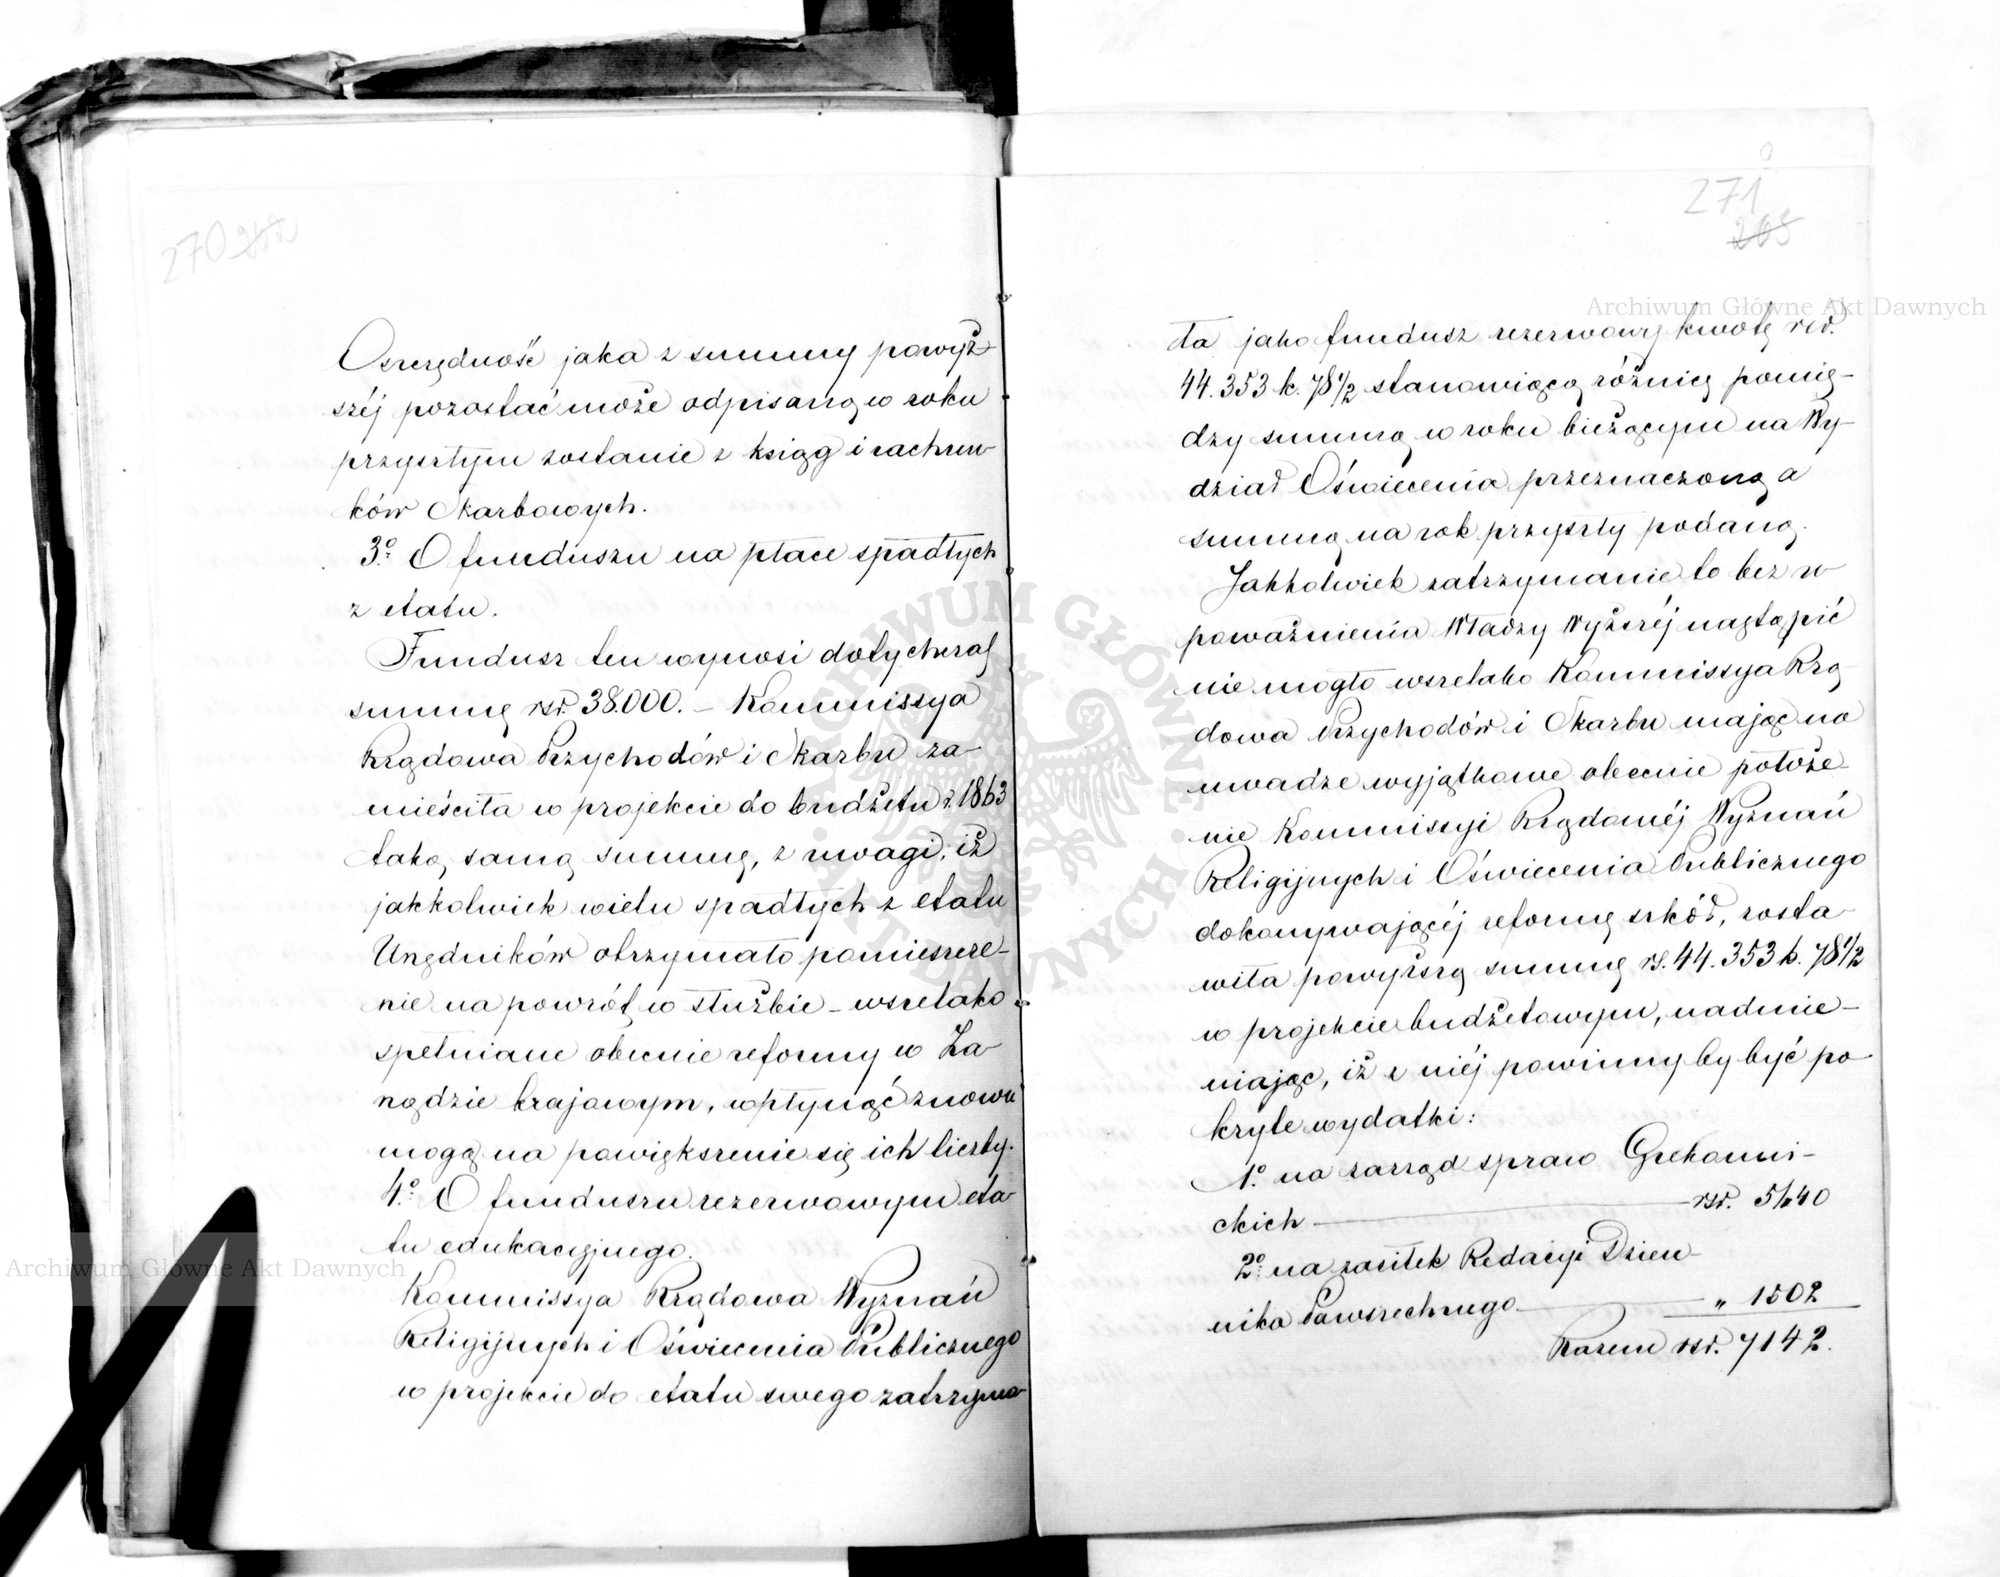 270 268
Oszczędność jaka z summy powyż-
széj pozostać może odpisaną w roku
przyszłym zostanie z ksiąg i rachun-
ków Skarbowych.
3º O funduszu na płace spadłych
z etatu.
Fundusz ten wynosi dotychczas
summę rsr. 38.000. – Kommissya
Rządowa Przychodów i Skarbu za-
mieściła w projekcie do budżetu r. 1863
taką samą summę, z uwagi, iż
jakkolwiek wielu spadłych z etatu
Urzędników otrzymało pomieszcze-
nie na powrót w służbie – wszelako
spełniane obecnie reformy w Za-
rządzie krajowym, wpłynąć znowu
mogą na powiększenie się ich liczby.
4º O funduszu rezerwowym eta-
tu edukacyjnego.
Kommissya Rządowa Wyznań
Religijnych i Oświecenia Publicznego
w projekcie do etatu swego zatrzyma-
271
265
ła jako fundusz rezerwowy kwotę rsr.
44.353 k. 78 1/2 stanowiącą różnicę pomię-
dzy summą w roku bieżącym na Wy-
dział Oświecenia przeznaczoną a
summą na rok przyszły podaną.
Jakkolwiek zatrzymanie to bez u-
poważnienia Władzy Wyższéj nastąpić
nie mogło wszelako Kommissya Rzą-
dowa Przychodów i Skarbu mając na
uwadze wyjątkowe obecnie położe-
nie Kommissyi Rządowéj Wyznań
Religijnych i Oświecenia Publicznego
dokonywającéj reformę szkół, zosta-
wiła powyższą summę rs. 44.353 k. 78 1/2
w projekcie budżetowym, nadmie-
niając, iż z niéj powinny by być po-
kryte wydatki:
1º na zarząd spraw Grekouni-
ckich rsr. 5640
2º na zasiłek Redacyi Dzien-
nika Powszechnego " 1502
Razem rsr. 7142.
Archiwum Główne Akt Dawnych
Archiwum Główne Akt Dawnych
ARCHIWUM GŁÓWNE AKT DAWNYCH